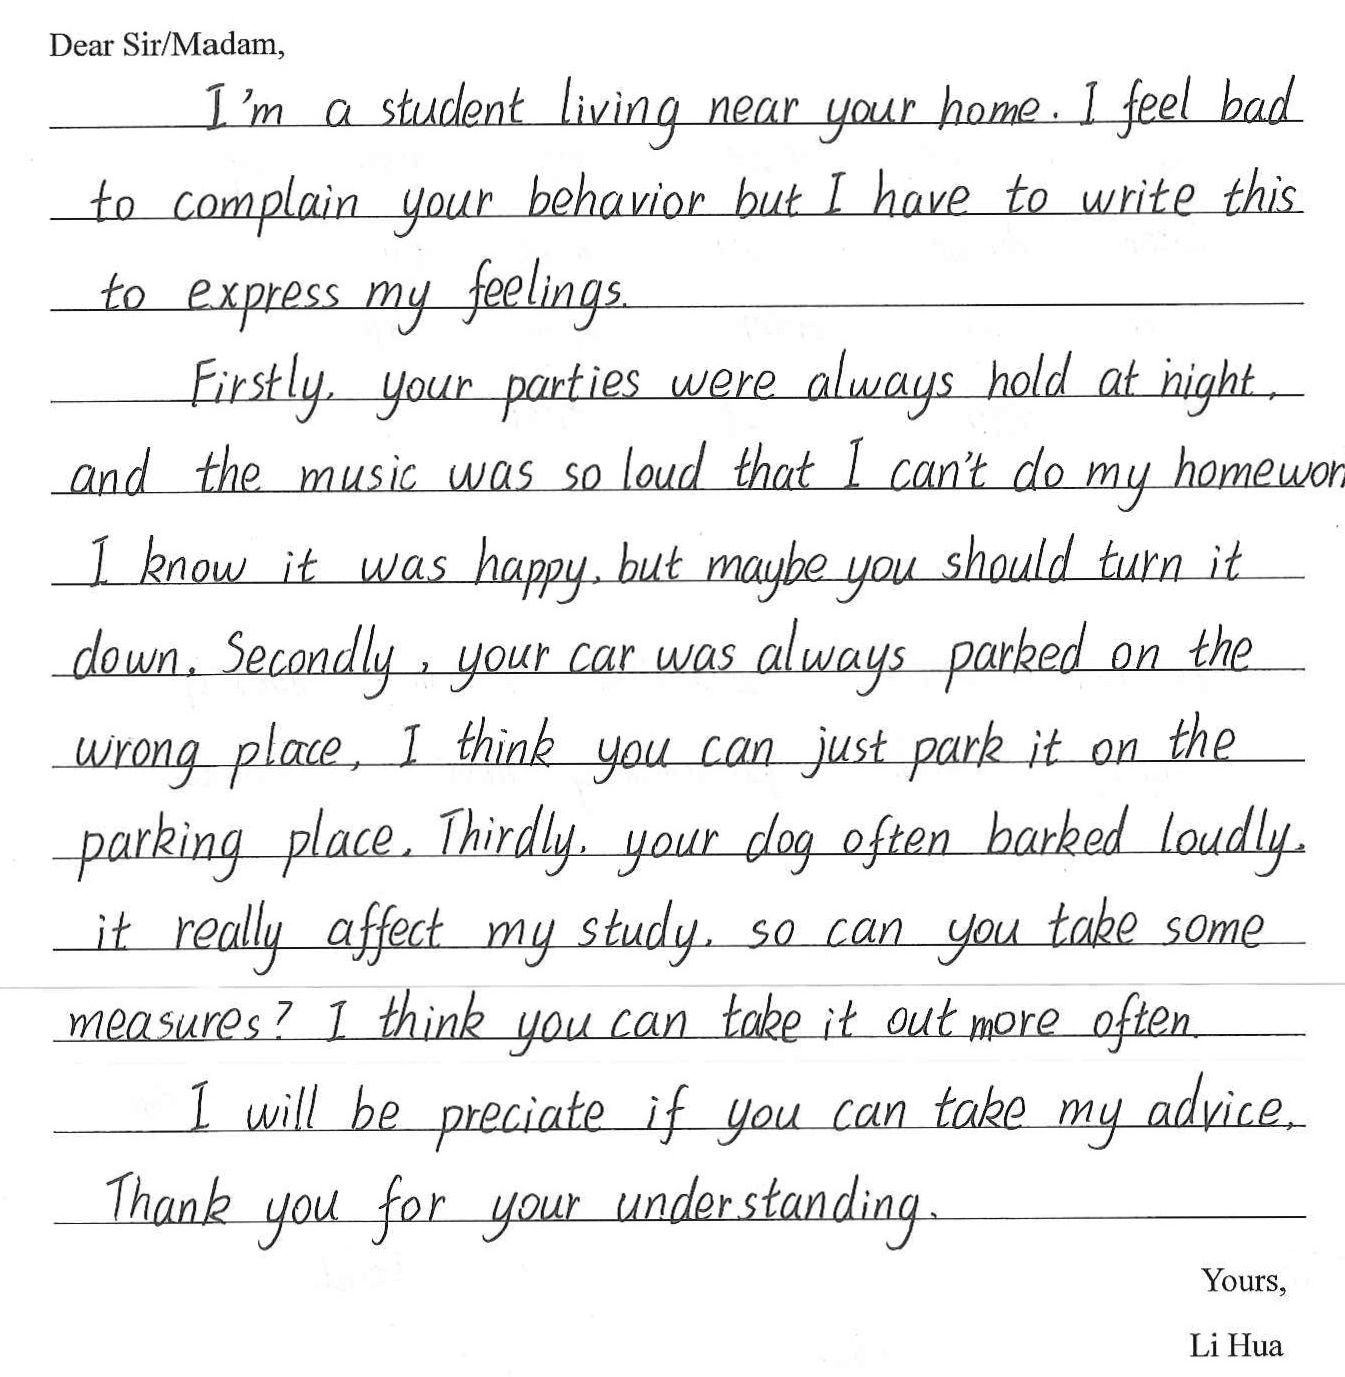 Dear Sir/Madam,
I'm a student living near your home. I feel bad
to complain your behavior but I have to write this
to express my feelings.
Firstly, your parties were always hold at night,
and the music was so loud that I can't do my homewor
I know it was happy, but maybe you should turn it
down. Secondly, your car was always parked on the
wrong place, I think you can just park it on the
parking place. Thirdly, your dog often barked loudly.
it really affect my study. so can you take some
measures? I think you can take it out more often.
I will be preciate if you can take my advice.
Thank you for your understanding.
Yours,
Li Hua